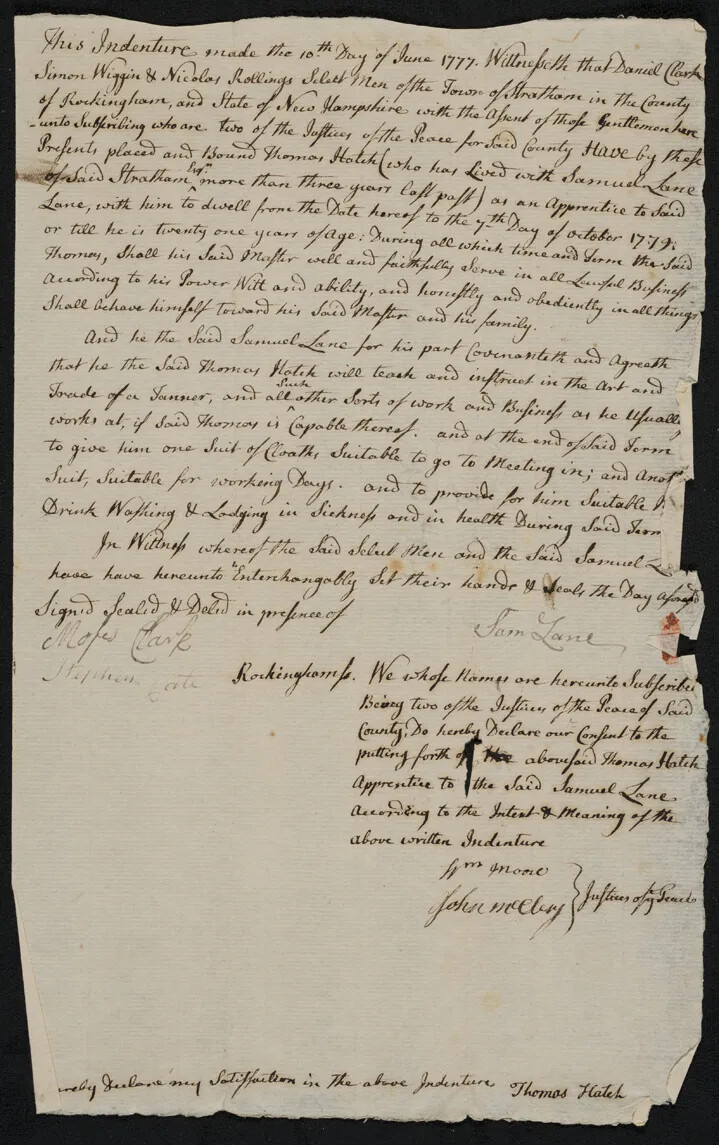 This Indenture made the 10th Day of June 1777. Wittnesseth that Daniel Clark
Simon Wiggin & Nicolas Rollings Select Men of the Town of Stratham in the County
of Rockingham, and State of New Hampshire with the Assent of those Gentlemen here
-unto Subscribing who are two of the Justices of the Peace for Said County Have by these
Presents placed and Bound Thomas Hatch (who has Lived with Samuel Lane
of Said Stratham more than three years last past) as an Apprentice to Said
Lane, with him to dwell from the Date hereof to the 7th Day of October 1779:
or till he is twenty one years of Age: During all which time and Term the Said
Thomas, Shall his Said Master well and faithfully Serve in all Lawful Business
According to his Power Witt and ability, and honestly and obediently in all things
Shall behave himself toward his Said Master and his family.
And he the Said Samuel Lane for his part Covenanteth and Agreeth
that he the Said Thomas Hatch will teach and instruct in the Art and
Trade of a Tanner, and all Such other Sorts of work and Business as he Usually
works at, if Said Thomas is Capable thereof. and at the end of Said Term
to give him one Suit of Cloaths Suitable to go to Meeting in; and Anot
Suit, Suitable for working Days. and to provide for him Suitable
Drink Washing & Lodging in Sickness and in health During Said Term
In Wittness whereof the Said Select Men and the Said Samuel L
have have hereunto Enterchangably Set their hands & Seals the Day aforesd
Signed Sealed & Deled in presence of
Moses Clark
Sam Lane
Stephen
Rockingham ss. We whose Names are hereunto Subscribe
Being two of the Justices of the Peace of Said
County, Do hereby Declare our Consent to the
putting forth of abovesaid Thomas Hatch
Apprentice to the Said Samuel Lane
According to the Intent & Meaning of the
above written Indenture
Wm Moore
John McClary
Justices of ye Peace
reby Declare my Satisfaction in the above Indenture Thomas Hatch